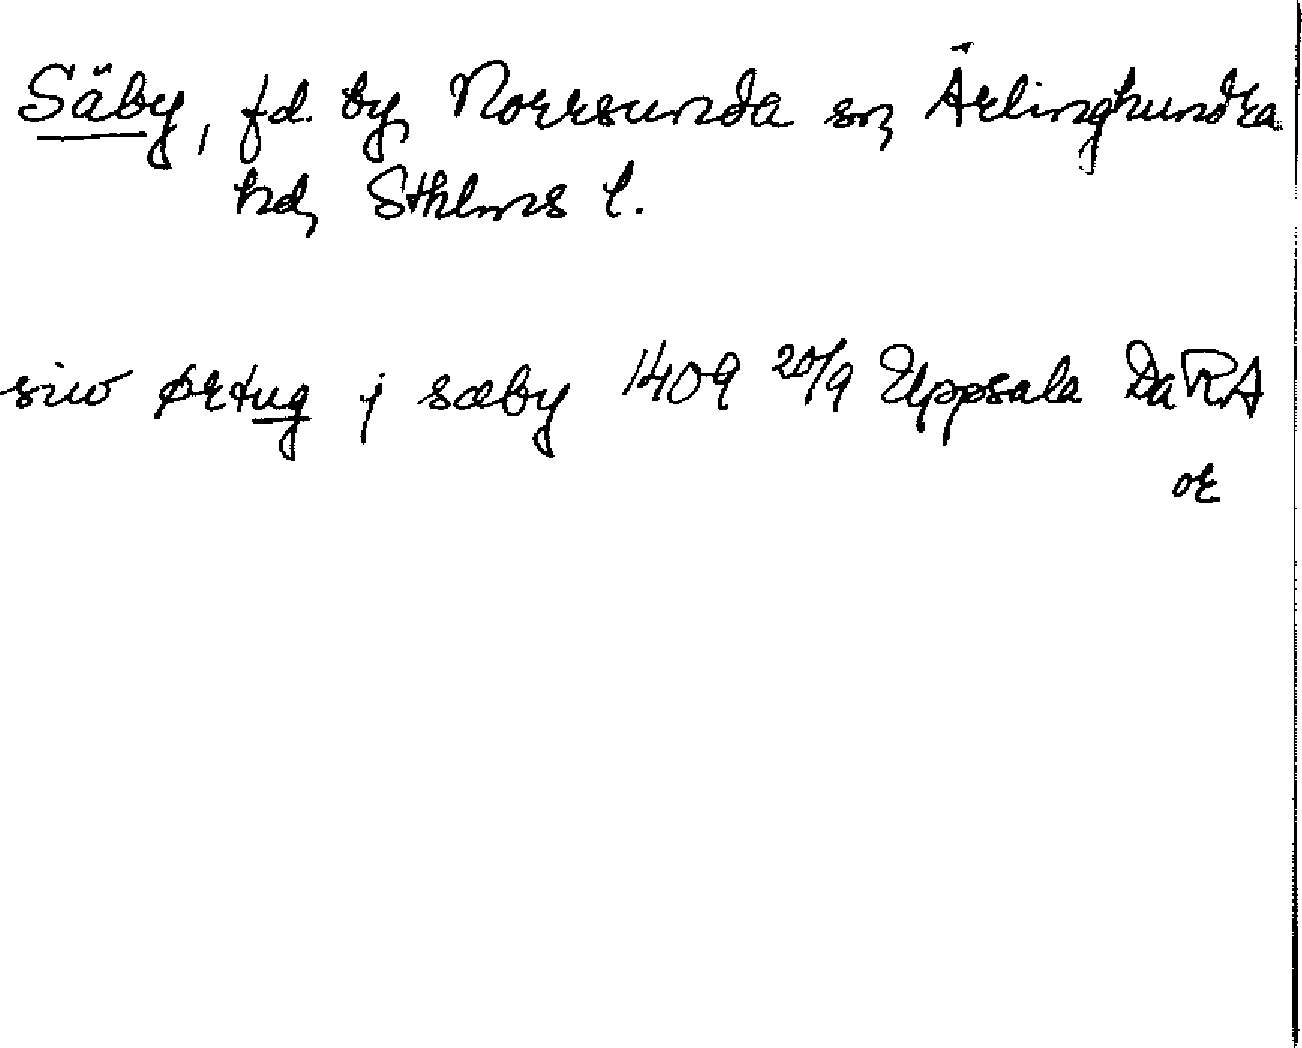 Säby, fd. by, Norrsunda sn, Ärlinghundra
hd, Sthlms l.
siw ørtug j sæby 1409 20/9 Uppsala DaRA
or